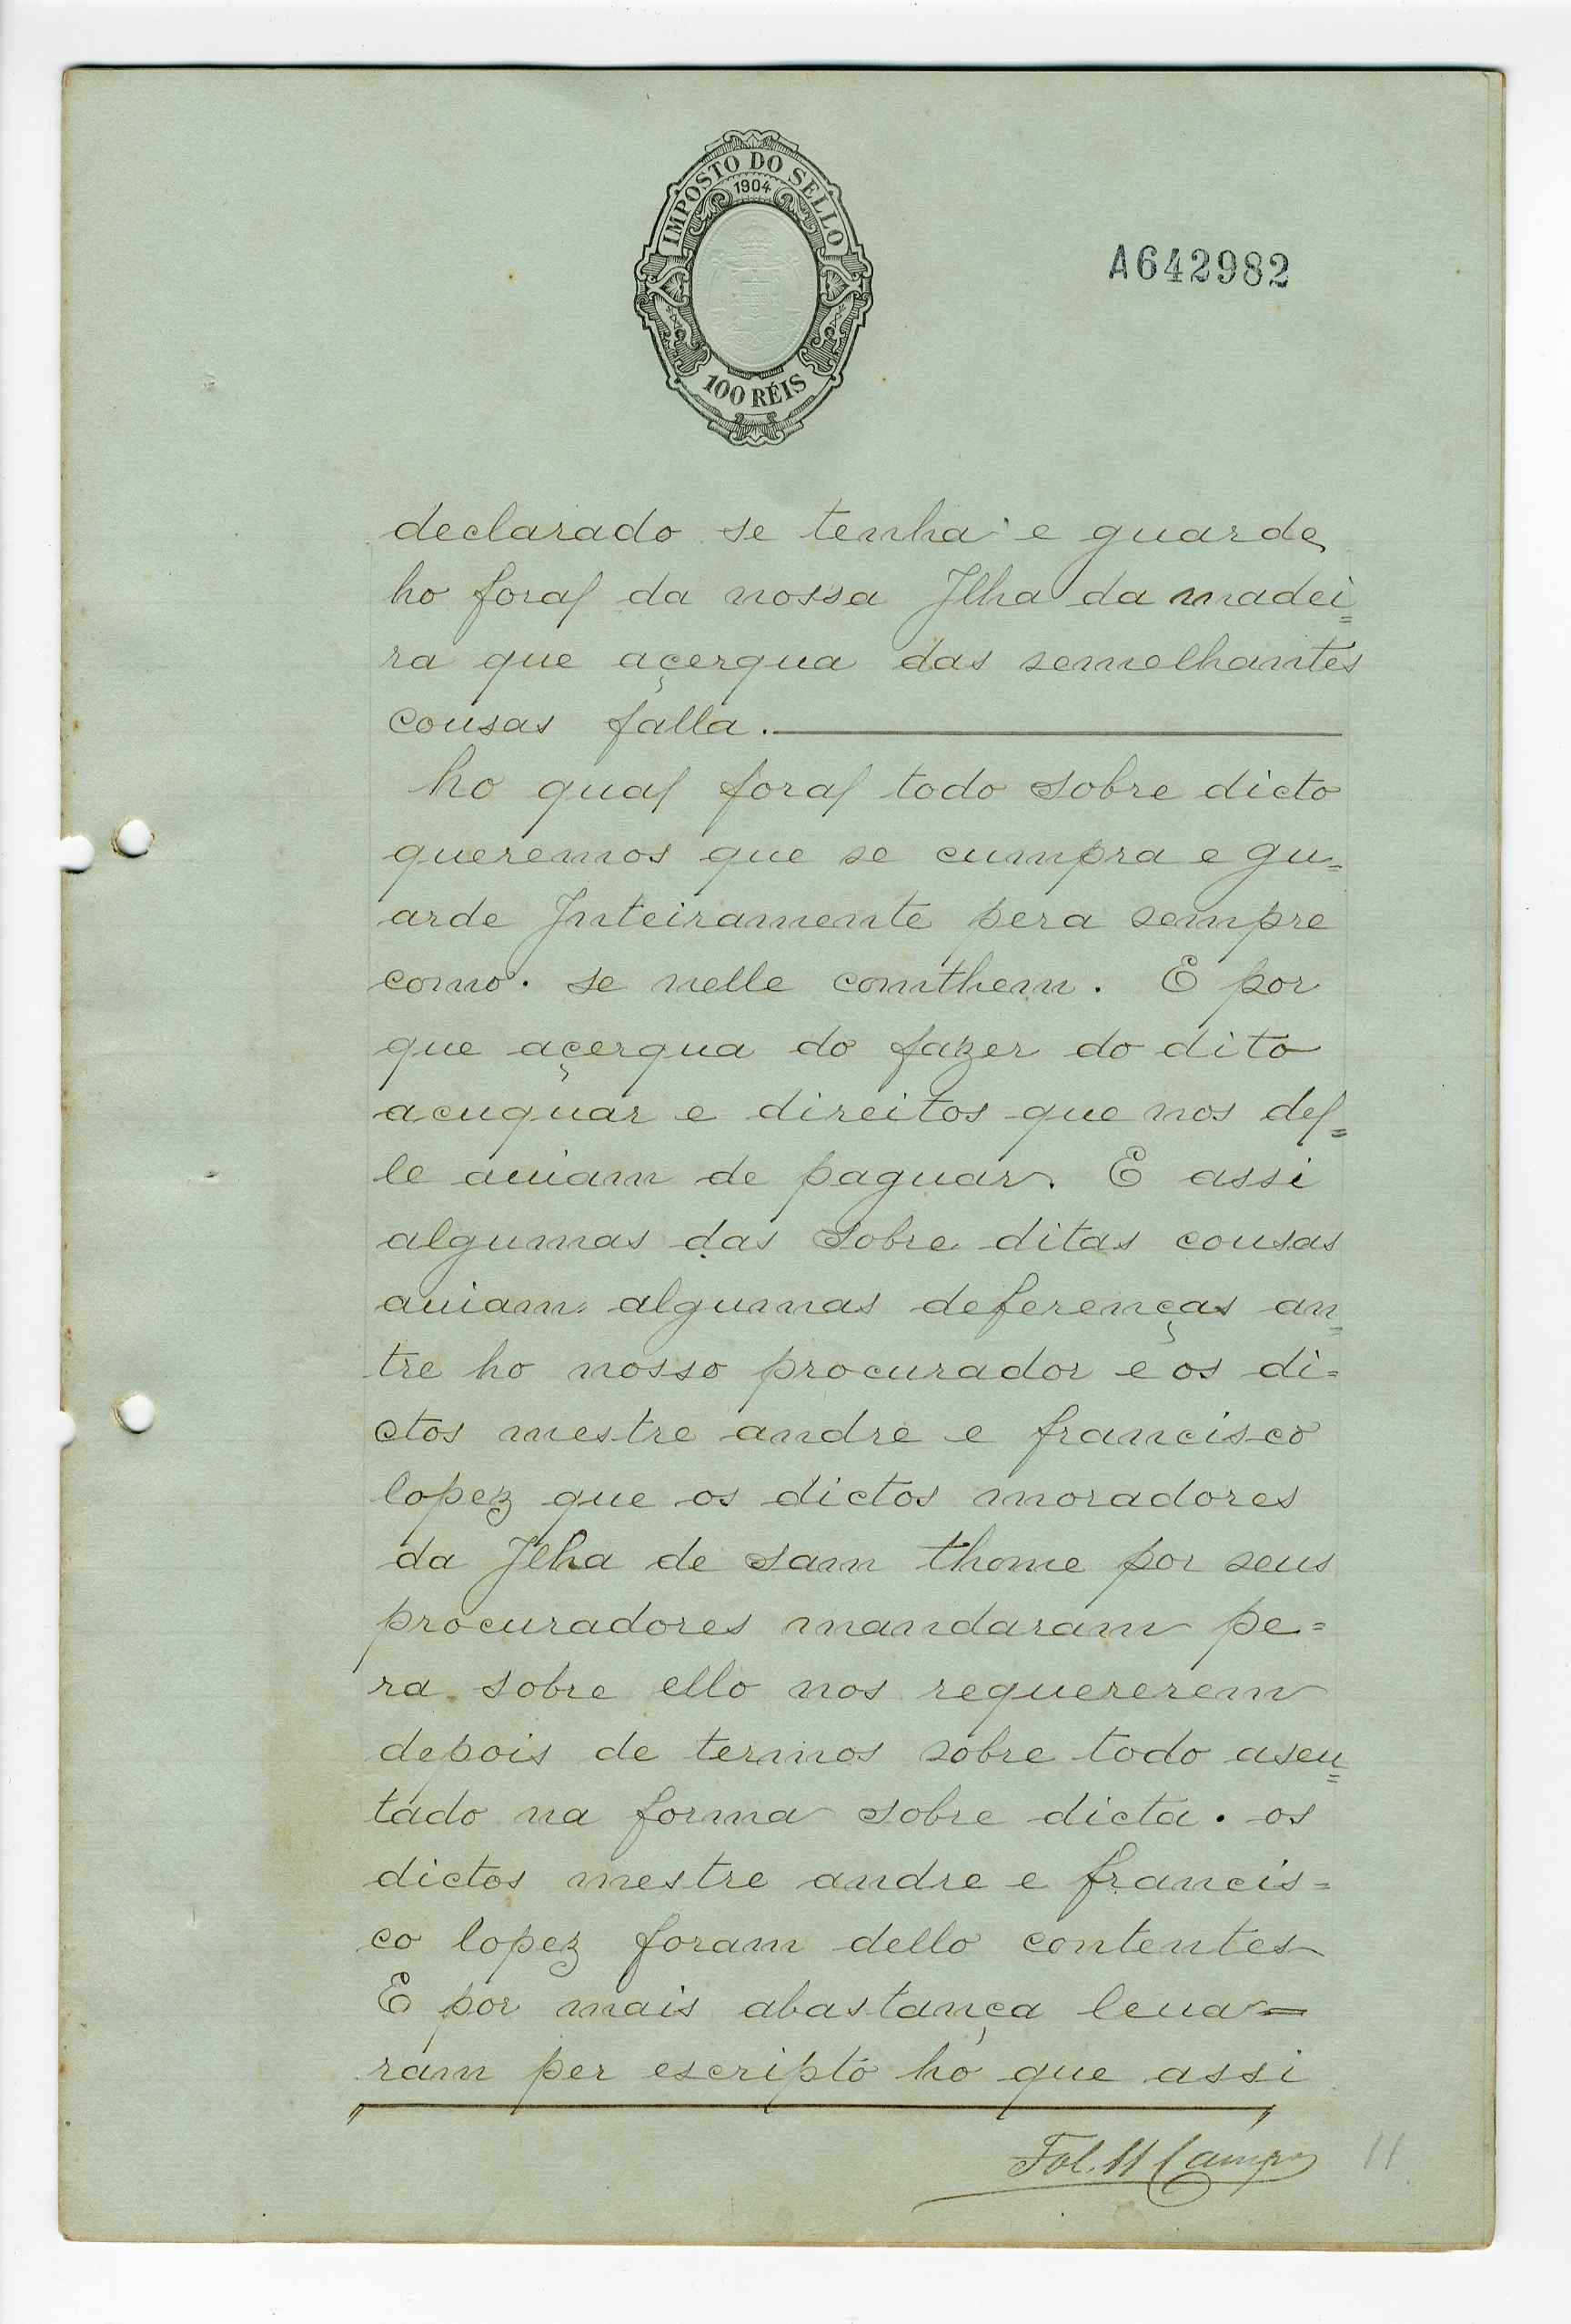 IMPOSTO DO SELLO
1904
100 RÉIS
A642982
declarado se tenha e guarde
ho foral da nossa Jlha da madei=
ra que açerqua das semelhantes
cousas falla.
ho qual foral todo sobre dicto
queremos que se cumpra e gu=
arde Jnteiramente pera sempre
como. se nelle comthem. E por
que açerqua do fazer do dito
acuquar e direitos que nos del=
le auiam de paguar. E assi
algumas das sobre ditas cousas
auiam algumas deferenças an=
tre ho nosso procurador e os di=
ctos mestre andre e francisco
lopez que os dictos moradores
da Jlha de sam thome por seus
procuradores mandaram pe=
ra sobre ello nos requererem
depois de termos sobre todo aseu=
tado na forma sobre dicta. os
dictos mestre andre e francis=
co lopez foram dello contentes
E por mais abastança leua=
ram per escripto ho que assi
Fol. 11 Campos 11